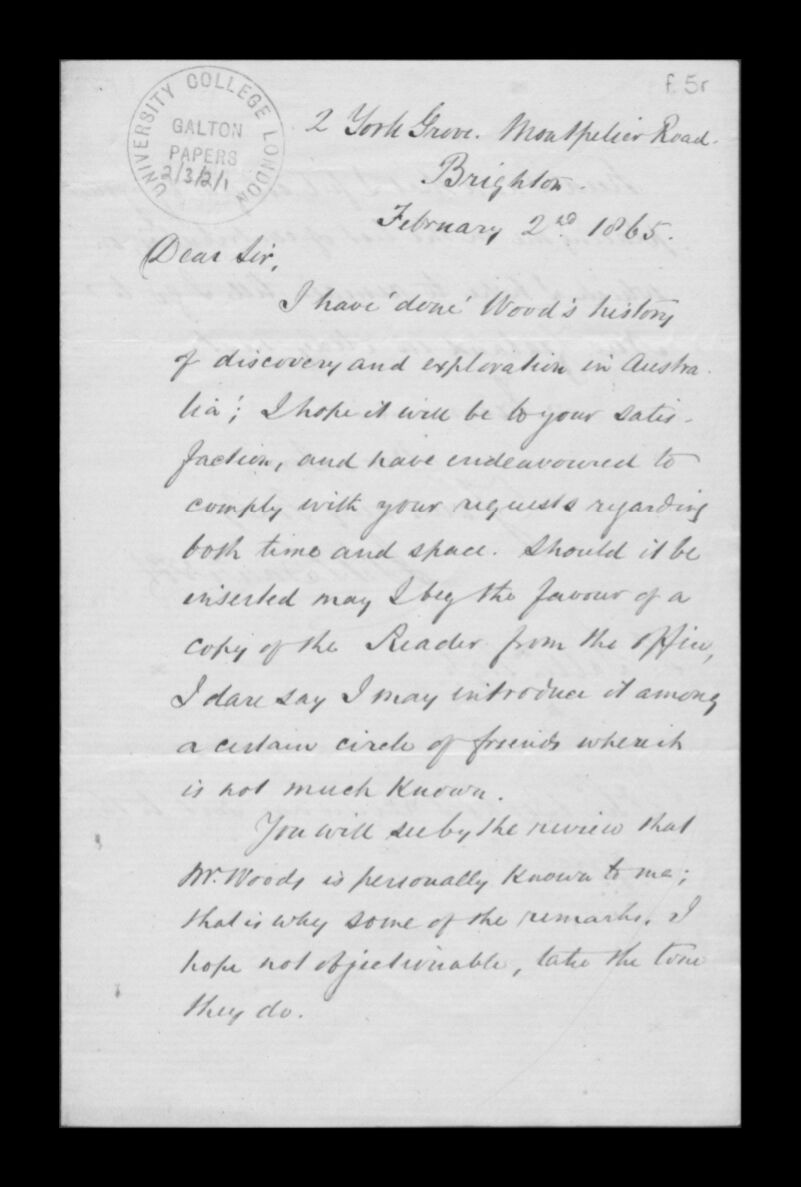 f. 5r
UNIVERSITY COLLEGE LONDON
GALTON
PAPERS
2/3/2/1
2 York Grove. Montpelier Road.
Brighton.
February 2nd. 1865.
Dear Sir,
I have 'done' Wood's history
of discovery and exploration in Austra-
lia'; I hope it will be to your satis-
faction, and have endeavoured to
comply with your requests regarding
both time and space. Should it be
inserted may I beg the favour of a
copy of the Reader from the office,
I dare say I may introduce it among
a certain circle of friends where it
is not much known.
You will see by the review that
Mr. Woods is personally known to me;
that is why some of the remarks, I
hope not objectionable, take the tone
they do.